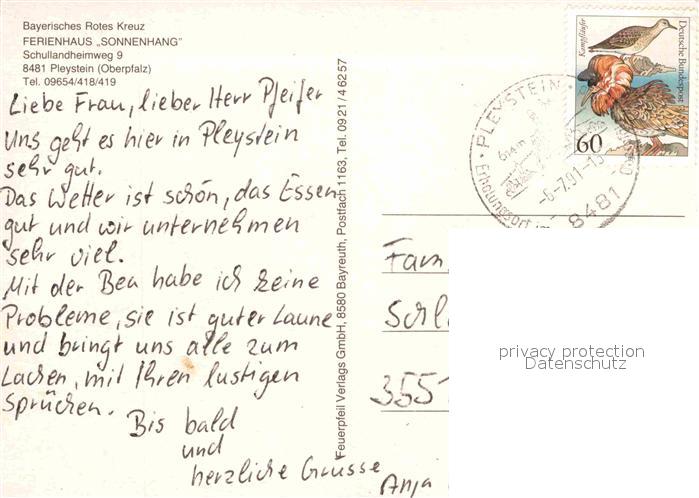 Bayerisches Rotes Kreuz
FERIENHAUS „SONNENHANG"
Schullandheimweg 9
8481 Pleystein (Oberpfalz)
Tel. 09654/418/419
Liebe Frau, lieber Herr Pfeifer
Uns geht es hier in Pleystein
sehr gut.
Das Wetter ist schön, das Essen
gut und wir unternehmen
sehr viel.
Mit der Bea habe ich keine
Probleme, sie ist guter Laune
und bringt uns alle zum
Lachen, mit Ihren lustigen
Sprüchen.
Bis bald
und
herzliche Grüsse
Anja
Feuerpfeil Verlags GmbH, 8580 Bayreuth, Postfach 1163, Tel. 0921/46257
Kampfläufer
Deutsche Bundespost
60
PLEYSTEIN
614 m
-6-7.91-15
Erholungsort im
8481
Fam.
Schl
3551
privacy protection
Datenschutz